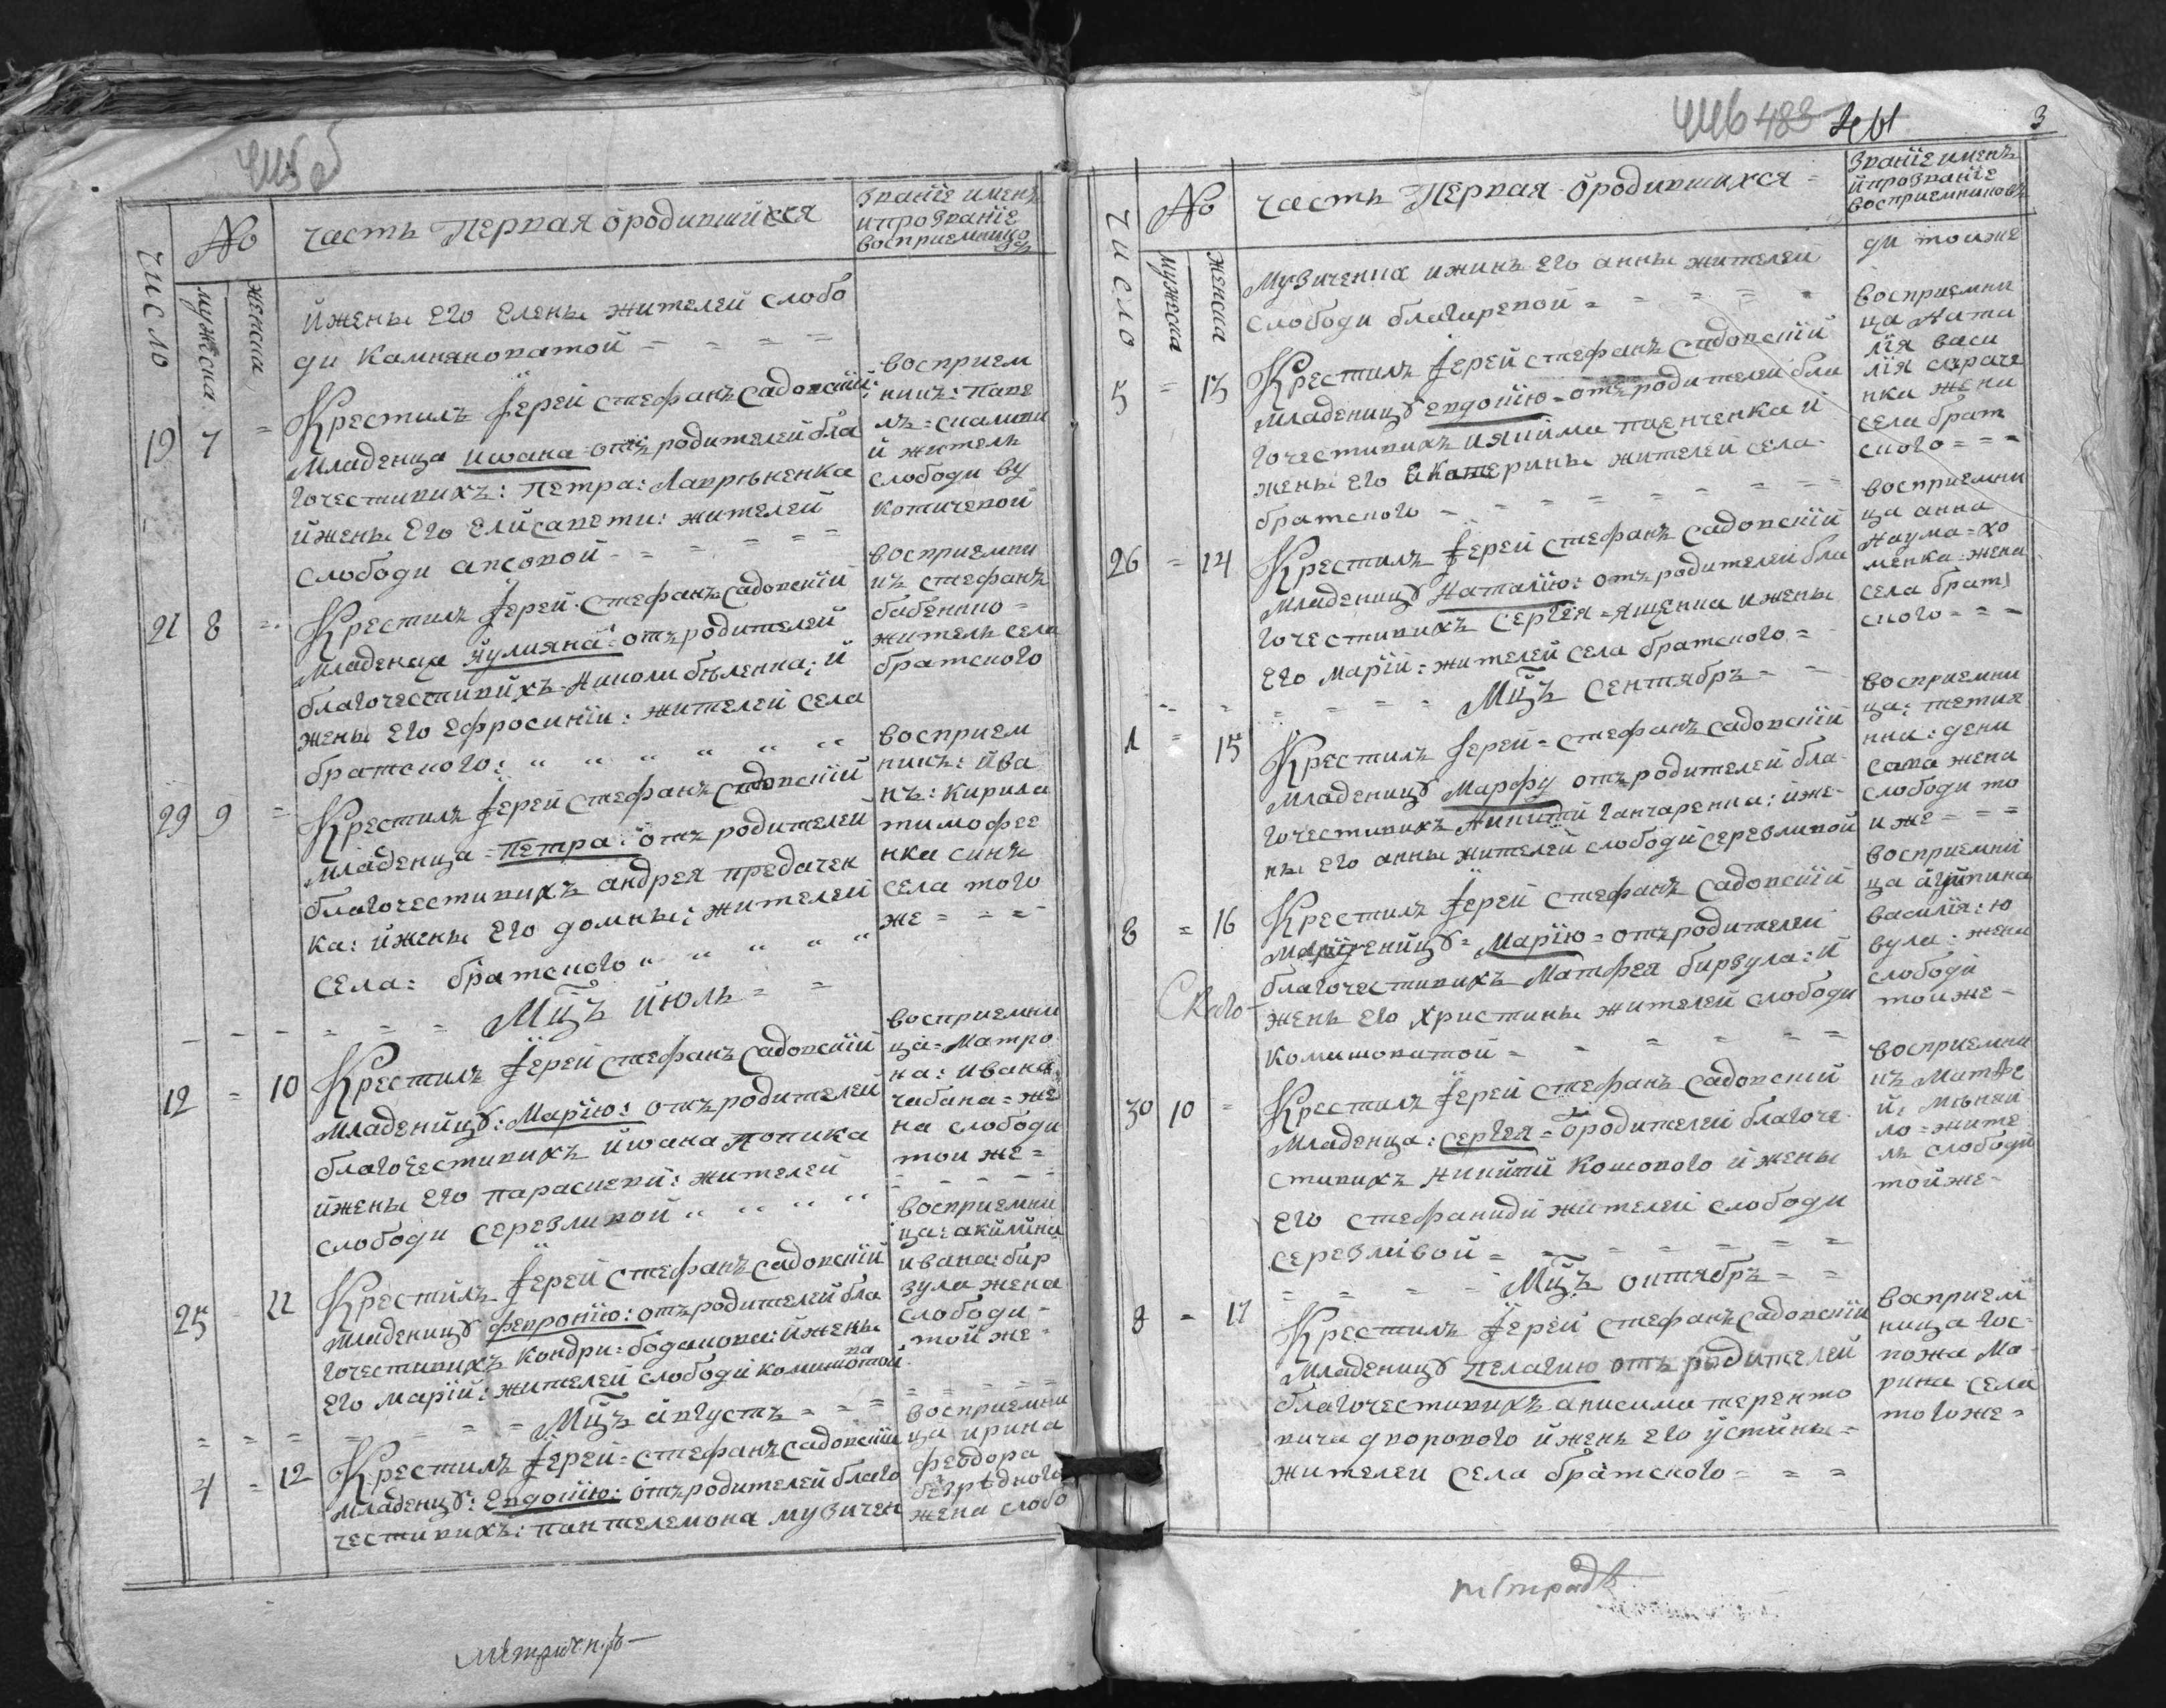 No
часть Перваѧ ѽродившихся
Званїе именъ
и прозванїе
восприемнико
въ
число
мужеска
женска
и жены его Елены жителей слобо
ди Камяноватой = = = =
19 7 =
Крестилъ Їерей стефанъ Садовскїй:
младенца Иѡана отъ родителей бла
гочестивихъ: Петра: Лаврѣненка
и жены Его Елисавети: жителей
слободи аксовой - = = = =
восприем
никъ: Паве
лъ: скамки
й житель
слободи Бу
котичевой
21 8 =
Крестилъ Їерей: стефанъ Садовскїй
младенца Иулияна: отъ родителей
благочестивихъ Николи бѣленка: и
жены его Ефросинїи: жителей села
братского: " " " " " "
восприемни
къ стефанъ
бабенко =
житель села
братского
29 9 =
Крестилъ Їерей стефанъ Садовскїй
младенца = Петра: отъ родителей
благочестивихъ андрея предачен
ка: и жены Его домны: жителей
села: братского " " " " "
восприем
никъ: ива
нъ: Кирила
тимофее
нка синъ
села того
же = = =
= = = Мцъ июль = =
12 = 10
Крестилъ Їерей стефанъ Садовскїй
младеницꙋ: Марїю: отъ родителей
благочестивихъ Иѡана Попика
и жены Его параскеви: жителей
слободи серезливой " " " "
восприемни
ца = Матро
на: Ивана
чабана = же
на слободи
тои же =
25 - 11
Крестилъ Їерей стефанъ Садовскїй
младеницꙋ Февронїю: отъ родителей бла
гочестивихъ Кондри: боданова: и жены
Его марїи: жителей слободи комишоватой
восприемни
ца: акилина
ивана: бир
зула жена
слободи =
той же =
= = = Мцъ августъ = = =
4 = 12
Крестилъ Їерей = стефанъ Садовскїй
младеницꙋ: Евдокїю: отъ родителей благо
честивихъ: пантелемона музичен
восприемни
ца ирина
феодора
жена слобо
483
3
No
часть Перваѧ ѽродившихся =
Званїе именъ
и прозванїе
восприемниковъ
число
мужеска
женска
Музиченка и жинъ Его анны жителей
слободи благиревой = = = = =
ди тоиже
5 = 13
Крестилъ Їерей стефанъ Садовскїй
младеницꙋ евдокїю = отъ родителей бла
гочестивихъ и якима паенченка и
жены Его Екатерины жителей села
братского = = = = = = =
восприемни
ца Ната
лїя васи
лїя сараче
нка жена
села брат
ского = = =
26 = 14
Крестилъ Їерей стефанъ Садовскїй
младеницꙋ Наталїю: отъ родителей бла
гочестивихъ Сергея = ященка и жены
Его Марїи: жителей села братского =
восприемни
ца анна
Наума = хо
менка = жена
села брат
ского = = =
= = = = = Мцъ Сентябръ = =
1 = 15
Крестилъ Їерей = стефанъ Садовскїй
младеницꙋ Марфу отъ родителей бла
гочестивихъ Никити ганчаренка: и же-
ны Его анны жителей слободи серезливой
восприемни
ца: тетия
нна: дени
сава жена
слободи то
и же = = =
8 = 16
Крестилъ Їерей стефанъ Садовскїй
младеницꙋ = Марїю = отъ родителей
благочестивихъ Матфея бирзула: и
женъ его христины жителей слободи
комишоватой = = = = = =
восприемни
ца агрипина
василїя: ю
вула: жена
слободи
тоиже =
30 10 =
Крестилъ Їерей стефанъ Садовский
младенца: Сергея = ѽродителей благоче
стивихъ Никити Кошового и жены
Его стефаниди жителей слободи
серезливой = = = = = =
восприемни
къ Матѳе
й: мѣнаи
ло = жите
ль слободи
тойже -
= = = = Мцъ октябръ = =
8 = 17
Крестилъ Їерей стефанъ Садовскїи
младеницꙋ Пелагию отъ родителей
благочестивихъ анисима теренто
вича дворового и женъ его устины =
жителей села братского = = =
восприем
ница гос-
пожа Ма
рина села
тогоже =